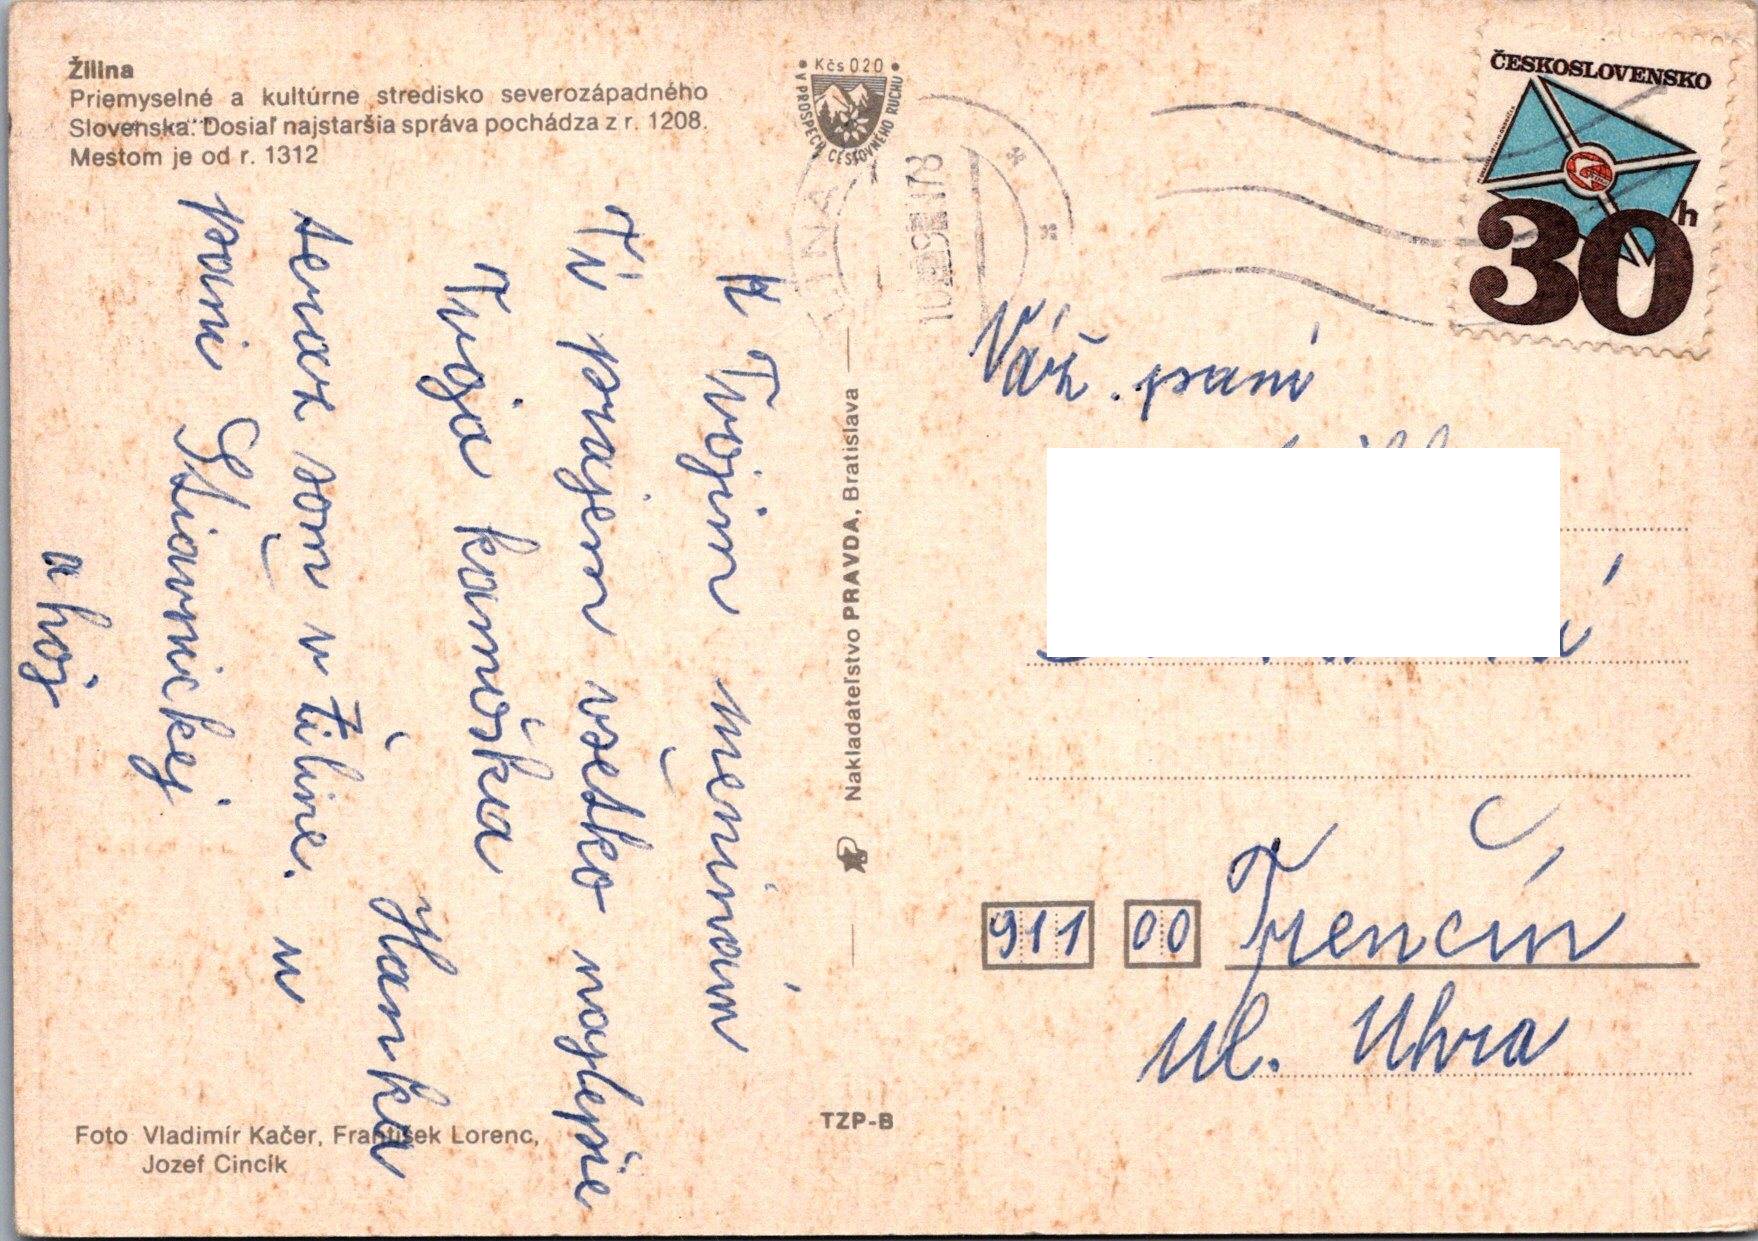 Žilina
Priemyselné a kultúrne stredisko severozápadného
Slovenska. Dosiaľ najstaršia správa pochádza z r. 1208.
Mestom je od r. 1312
K Tvojim meninám
Ti prajem všetko najlepšie
Tvoja kamoška
Hanka
teraz som v Žiline. u
pani Štiavnickej
ahoj
Foto Vladimír Kačer, František Lorenc,
Jozef Cincík
Kčs 020
V PROSPECH CESTOVNÉHO RUCHU
Nakladateľstvo PRAVDA, Bratislava
TZP-B
ČESKOSLOVENSKO
30 h
Váž. pani
911 00 Trenčín
ul. Uhra